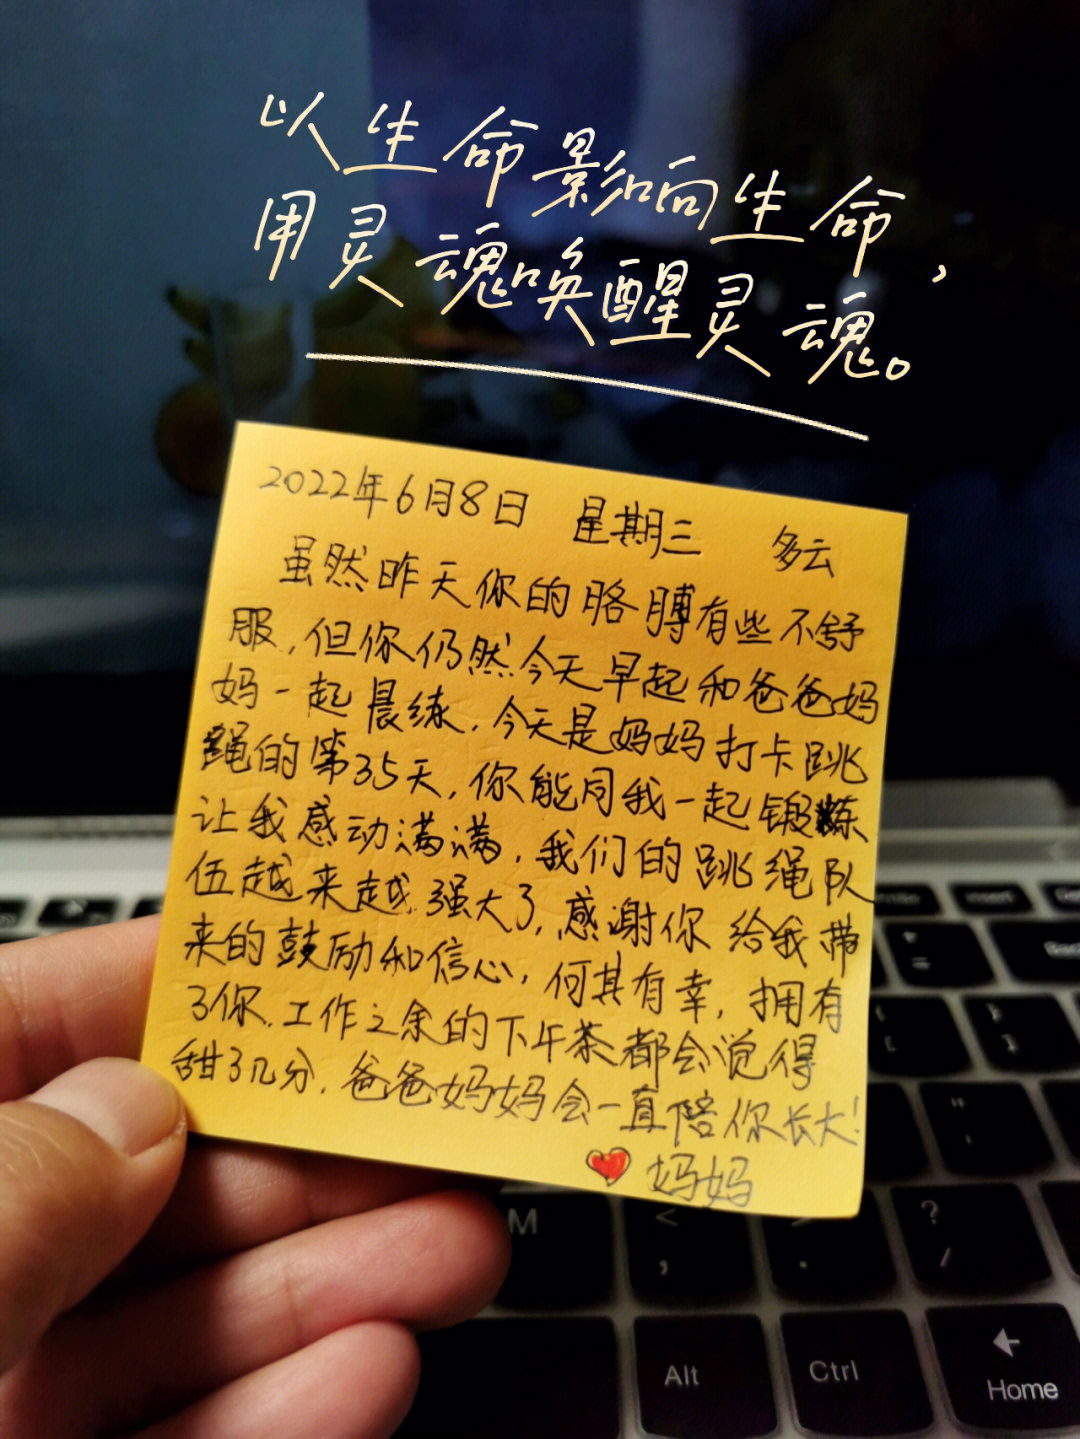 以生命影响生命,
用灵魂唤醒灵魂。
2022年6月8日 星期三 多云
虽然昨天你的胳膊有些不舒
服,但你仍然今天早起和爸爸妈
妈一起晨练,今天是妈妈打卡跳
绳的第35天,你能同我一起锻炼
让我感动满满,我们的跳绳队
伍越来越强大了,感谢你给我带
来的鼓励和信心,何其有幸,拥有
了你,工作之余的下午茶都会觉得
甜了几分,爸爸妈妈会一直陪你长大!
妈妈
Insert
Back
M
<
,
>
.
?
/
Alt
Ctrl
Home